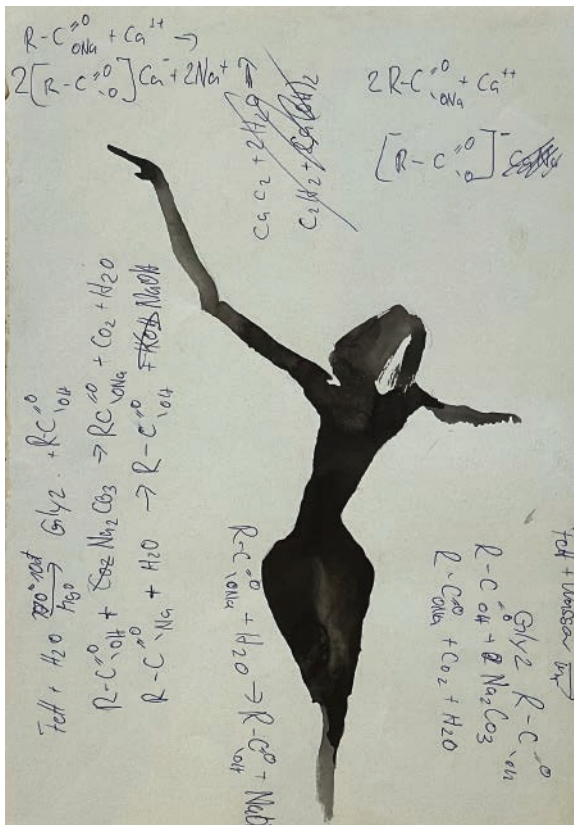 R-C=O ONa + Ca++ →
2[R-C=O O]Ca + 2Na+
2R-C=O ONa + Ca++
[R-C=O O]-
CaC2 + 2H2O →
C2H2 + Ca(OH)2
Fett + H2O → Glyz. + R-C=O OH
R-C=O OH + Na2CO3 → RC=O ONa + CO2 + H2O
R-C=O Na + H2O → R-C=O OH + NaOH
R-C=O ONa + H2O → R-C=O OH + NaO
Fett + Wasser
Glyz R-C=O OH
R-C=O OH + Na2CO3
R-C=O ONa + CO2 + H2O